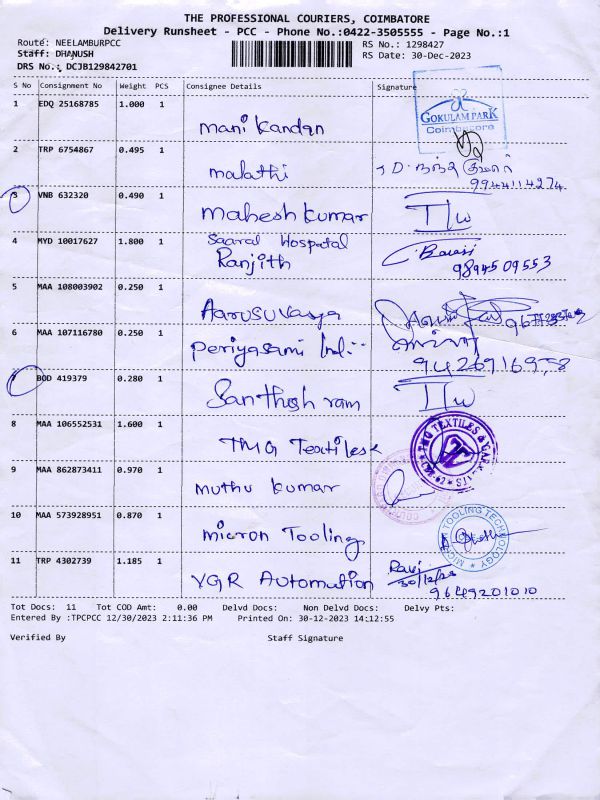 THE PROFESSIONAL COURIERS, COIMBATORE
Delivery Runsheet - PCC - Phone No.:0422-3505555 - Page No.:1
Route: NEELAMBURPCC
RS No.: 1298427
Staff: DHANUSH
RS Date: 30-Dec-2023
DRS No.: DCJB129842701
S No Consignment No Weight PCS Consignee Details Signature
1 EDQ 25168785 1.000 1 Mani Kandan GOKULAM PARK Coimbatore
2 TRP 6754867 0.495 1 malathi
9944114274
3 VNB 632320 0.490 1 mahesh kumar I/w
4 MYD 10017627 1.800 1 Saaral Hospatal
Ranjith 9894509553
5 MAA 108003902 0.250 1 Aarusuvasya
6 MAA 107116780 0.250 1 Periyasami
7 BOD 419379 0.280 1 Santhosh ram I/w
8 MAA 106552531 1.600 1 TMG Textiles
9 MAA 862873411 0.970 1 muthu kumar
10 MAA 573928951 0.870 1 micron Tooling MICRON TOOLING TECHNOLOGY
11 TRP 4302739 1.185 1 VGR Automation Ravi
30/12/23
9649201010
Tot Docs: 11 Tot COD Amt: 0.00 Delvd Docs: Non Delvd Docs: Delvy Pts:
Entered By :TPCPCC 12/30/2023 2:11:36 PM Printed On: 30-12-2023 14:12:55
Verified By Staff Signature